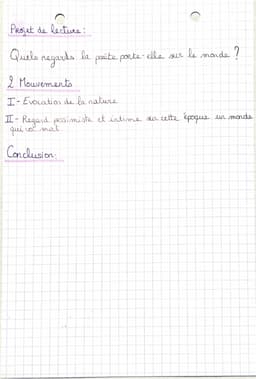 Projet de lecture :
Quels regards la poète porte-elle sur le monde ?
2 Mouvements
I - Evocation de la nature
II - Regard pessimiste et intime sur cette époque un monde
qui va mal
Conclusion :